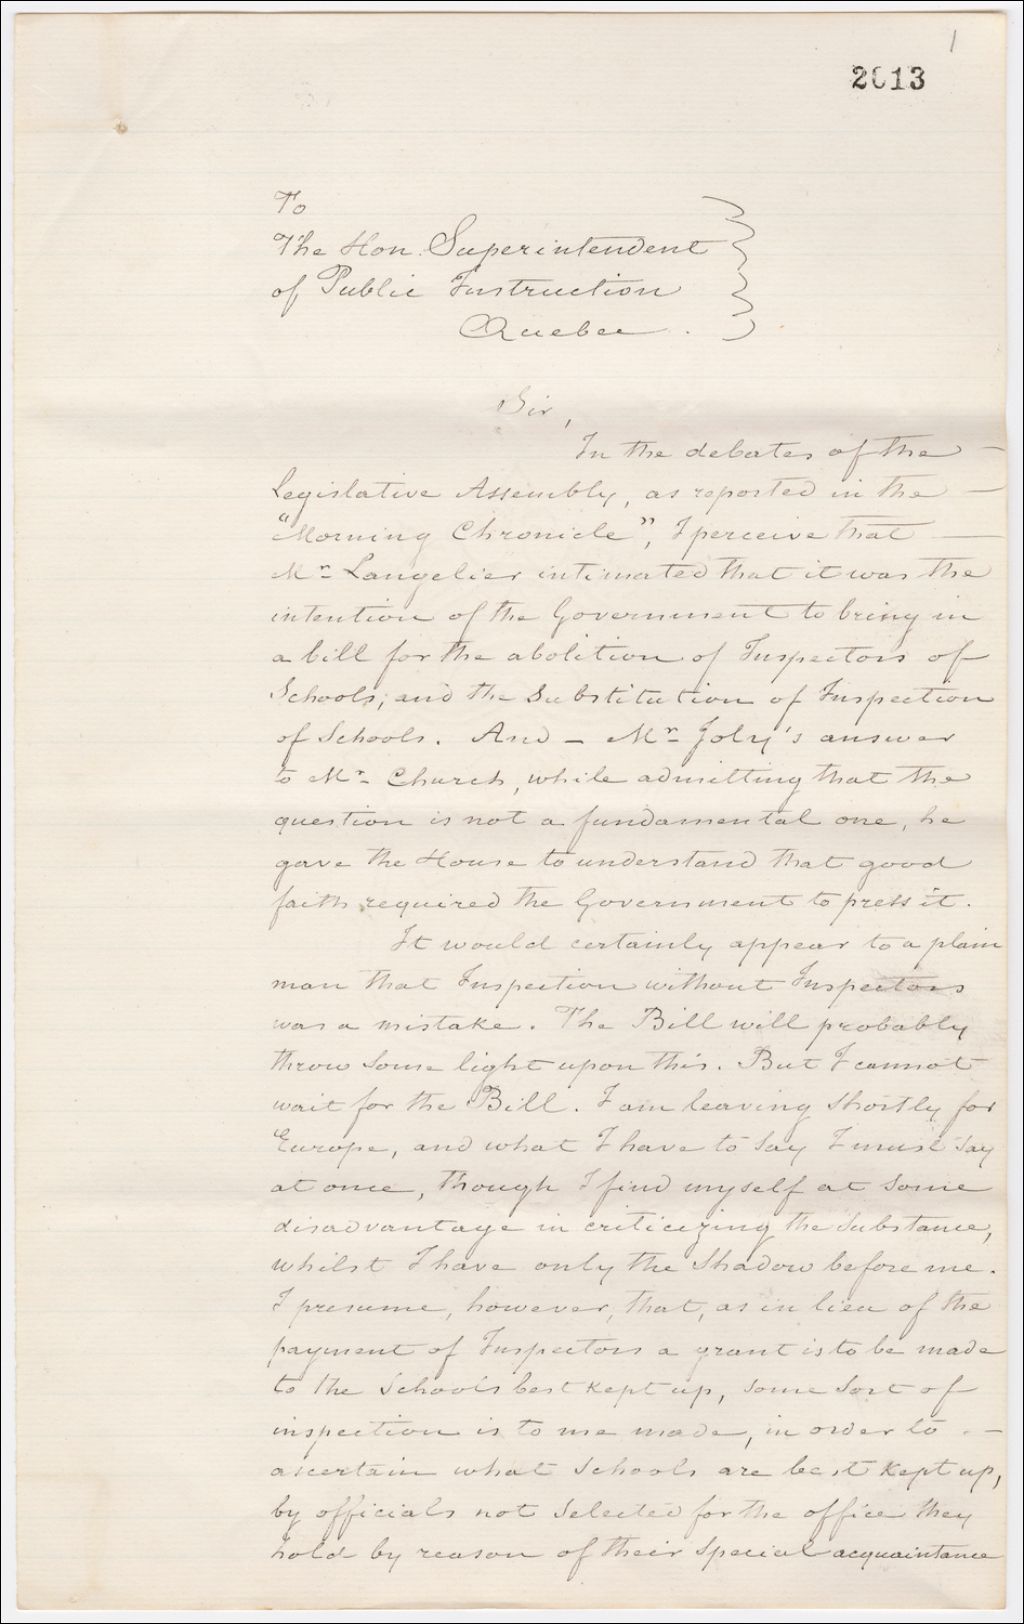 1
2013
To
The Hon. Superintendent
of Public Instruction
Quebec.
Sir,
In the debates of the —
Legislative Assembly, as reported in the —
"Morning Chronicle", I perceive that —
Mr. Langelier intimated that it was the
intention of the Government to bring in
a bill for the abolition of Inspectors of
Schools; and the Substitution of Inspection
of Schools. And – Mr. Joly's answer
to Mr. Church, while admitting that the
question is not a fundamental one, he
gave the House to understand that good
faith required the Government to press it.
It would certainly appear to a plain
man that Inspection without Inspectors
was a mistake. The Bill will probably
throw some light upon this. But I cannot
wait for the Bill. I am leaving shortly for
Europe, and what I have to say I must say
at once, though I find myself at some
disadvantage in criticizing the Substance,
whilst I have only the Shadow before me.
I presume, however, that, as in lieu of the
payment of Inspectors a grant is to be made
to the Schools best kept up, some sort of
inspection is to me made, in order to . —
ascertain what Schools are best kept up,
by officials not Selected for the office they
hold by reason of their Special acquaintance